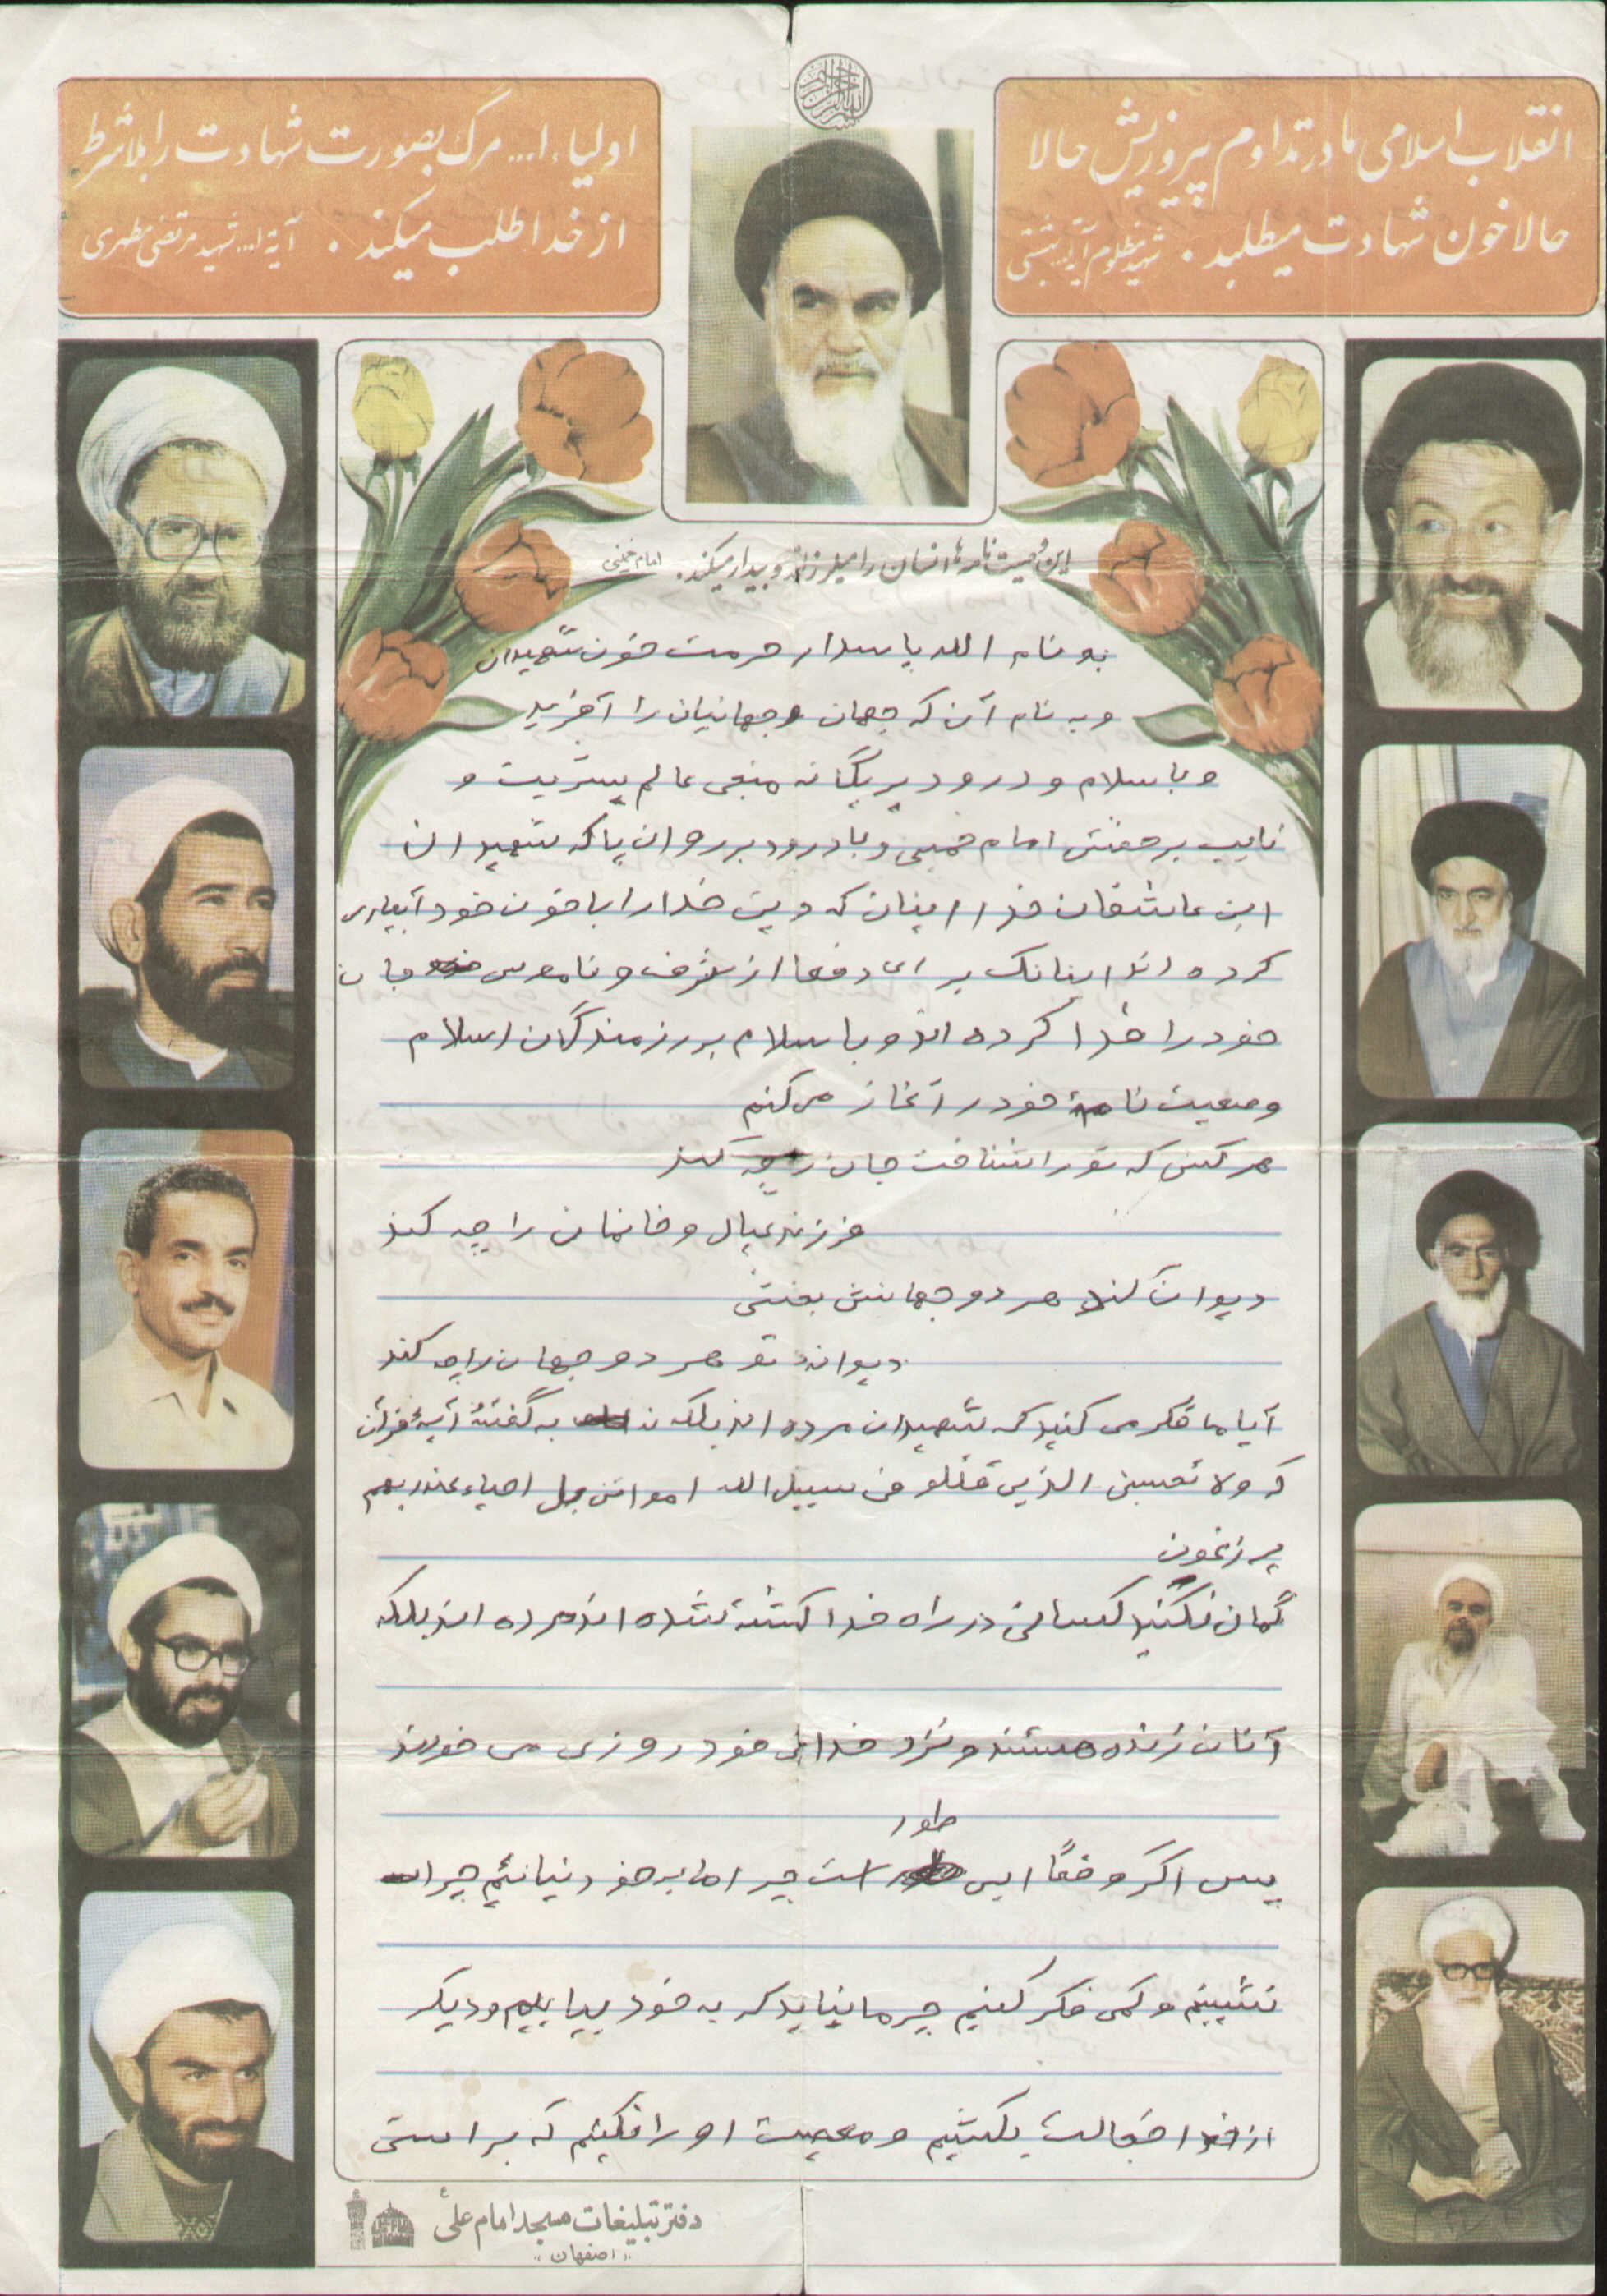 انقلاب اسلامی ما در تداوم پیروزیش حالا
حالا خون شهادت میطلبد . شهید مظلوم آیة ا... بهشتی
اولیاء ا... مرگ بصورت شهادت را بلاشرط
از خدا طلب میکند . آیة ا... شهید مرتضی مطهری
این وصیت نامه ها انسان را میلرزاند و بیدار میکند. امام خمینی
به نام الله پاسدار حرمت خون شهیدان
و به نام آن که جهان و جهانیان را آفرید
و با سلام و درود بر یگانه منجی عالم بشریت و
نایب برحقش امام خمینی و با درود بر روان پاک شهیدان
این عاشقان خدا اینان که دین خدا را با خون خود آبیاری
کرده اند اینانک برای دفعا از شرف و ناموس جان
خود را فدا کرده اند و با سلام بر رزمندگان اسلام
وصیت نامه خود را آغاز می کنم
هر کس که تو را شناخت جان را چه کند
فرزند عیال و خانمان را چه کند
دیوانه کنی هر دو جهانش بخشی
دیوانه تو هر دو جهان را چه کند
آیا ما فکر می کنید که شهیدان مرده اند بلکه نه به گفتهٔ آیهٔ قرآن
که ولا تحسبن الذین قتلو فی سبیل الله امواتن بل احیاء عند ربهم
یرزغون
گمان نکنید کسانی در راه خدا کشته شده اند مرده اند بلکه
آنان زنده هستند و نزد خدای خود روزی می خورند
پس اگر وقعاً این طور است چرا ما به خود نیائیم چرا
نشینیم و کمی فکر کنیم چرا ما نباید که به خود بیاییم و دیگر
از خدا خجالت بکشیم و معصیت او را نکنیم که براستی
دفتر تبلیغات مسجد امام علی ع
«اصفهان»